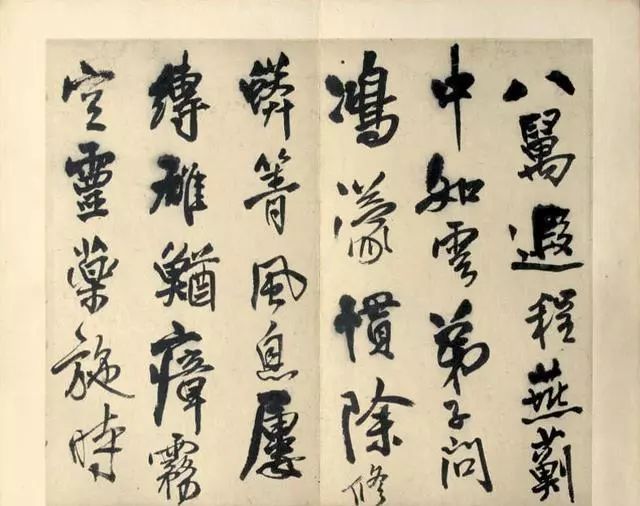 八萬遐程燕薊
中如雲弟子問
鴻濛慣除修
蟒箐風息屢
縛雄鰌瘴霧
空靈藥旋時